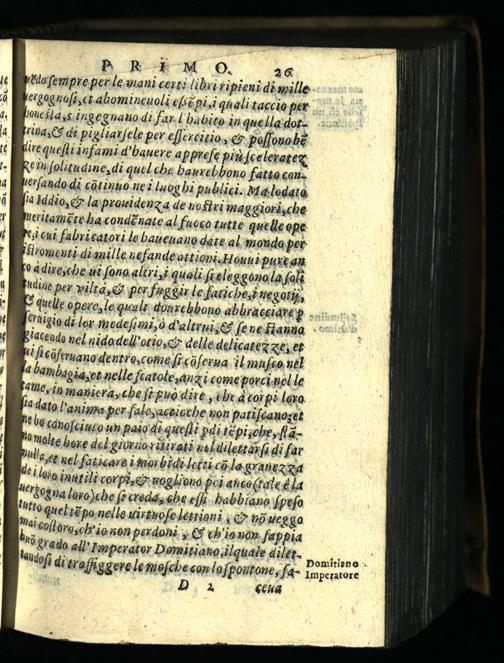 PRIMO. 26
uẽdo sempre per le mani certi libri ripieni di mille
uergognosi, et abomineuoli essẽpi, i quali taccio per
honestà, s'ingegnano di far l'habito in quella dot-
trina, & di pigliarsele per essercitio, & possono bẽ
dire questi infami d'hauere apprese più sceleratez
ze in solitudine, di quel che haurebbono fatto con-
uersando di cõtinuo ne i luoghi publici. Ma lodato
sia Iddio, & la prouidenza de nostri maggiori, che
meritamẽte ha condẽnate al fuoco tutte quelle ope
re, i cui fabricatori le haueuano date al mondo per
istromenti di mille nefande attioni. Houui pure an
co à dire, che ui sono altri, i quali si eleggono la soli
tudine per viltà, & per fuggir le fatiche, i negotij,
& quelle opere, le quali dourebbono abbracciare p
seruigio di lor medesimi, ò d'altrui, & se ne stanno
giacendo nel nido dell'otio, & delle delicatezze, et
ui si cõseruano dentro, come si cõserua il musco nel
la bambagia, et nelle scatole, anzi come porci nel le
tame, in maniera, che si può dire, che à corpi loro
sia dato l'anima per salo, accioche non patiscano; et
ne ho conosciuto un paio di questi pdi tẽpi, che, stã-
no molte hore del giorno ritirati nel dilettarsi di far
nulla, et nel faticare i morbidi letti cõ la grauezza
de i loro inutili corpi, & uogliono poi anco (tale è la
uergogna loro) che si creda, che essi habbiano speso
tutto quel tẽpo nelle uirtuose lettioni, & nõ ueggo
mai costoro, ch'io non perdoni, & ch'io non sappia
buõ grado all'Imperator Domitiano, il quale dilet-
tandosi di traffiggere le mosche con lo spontone, fa-
Domitiano
Imperatore
D 2 ceua